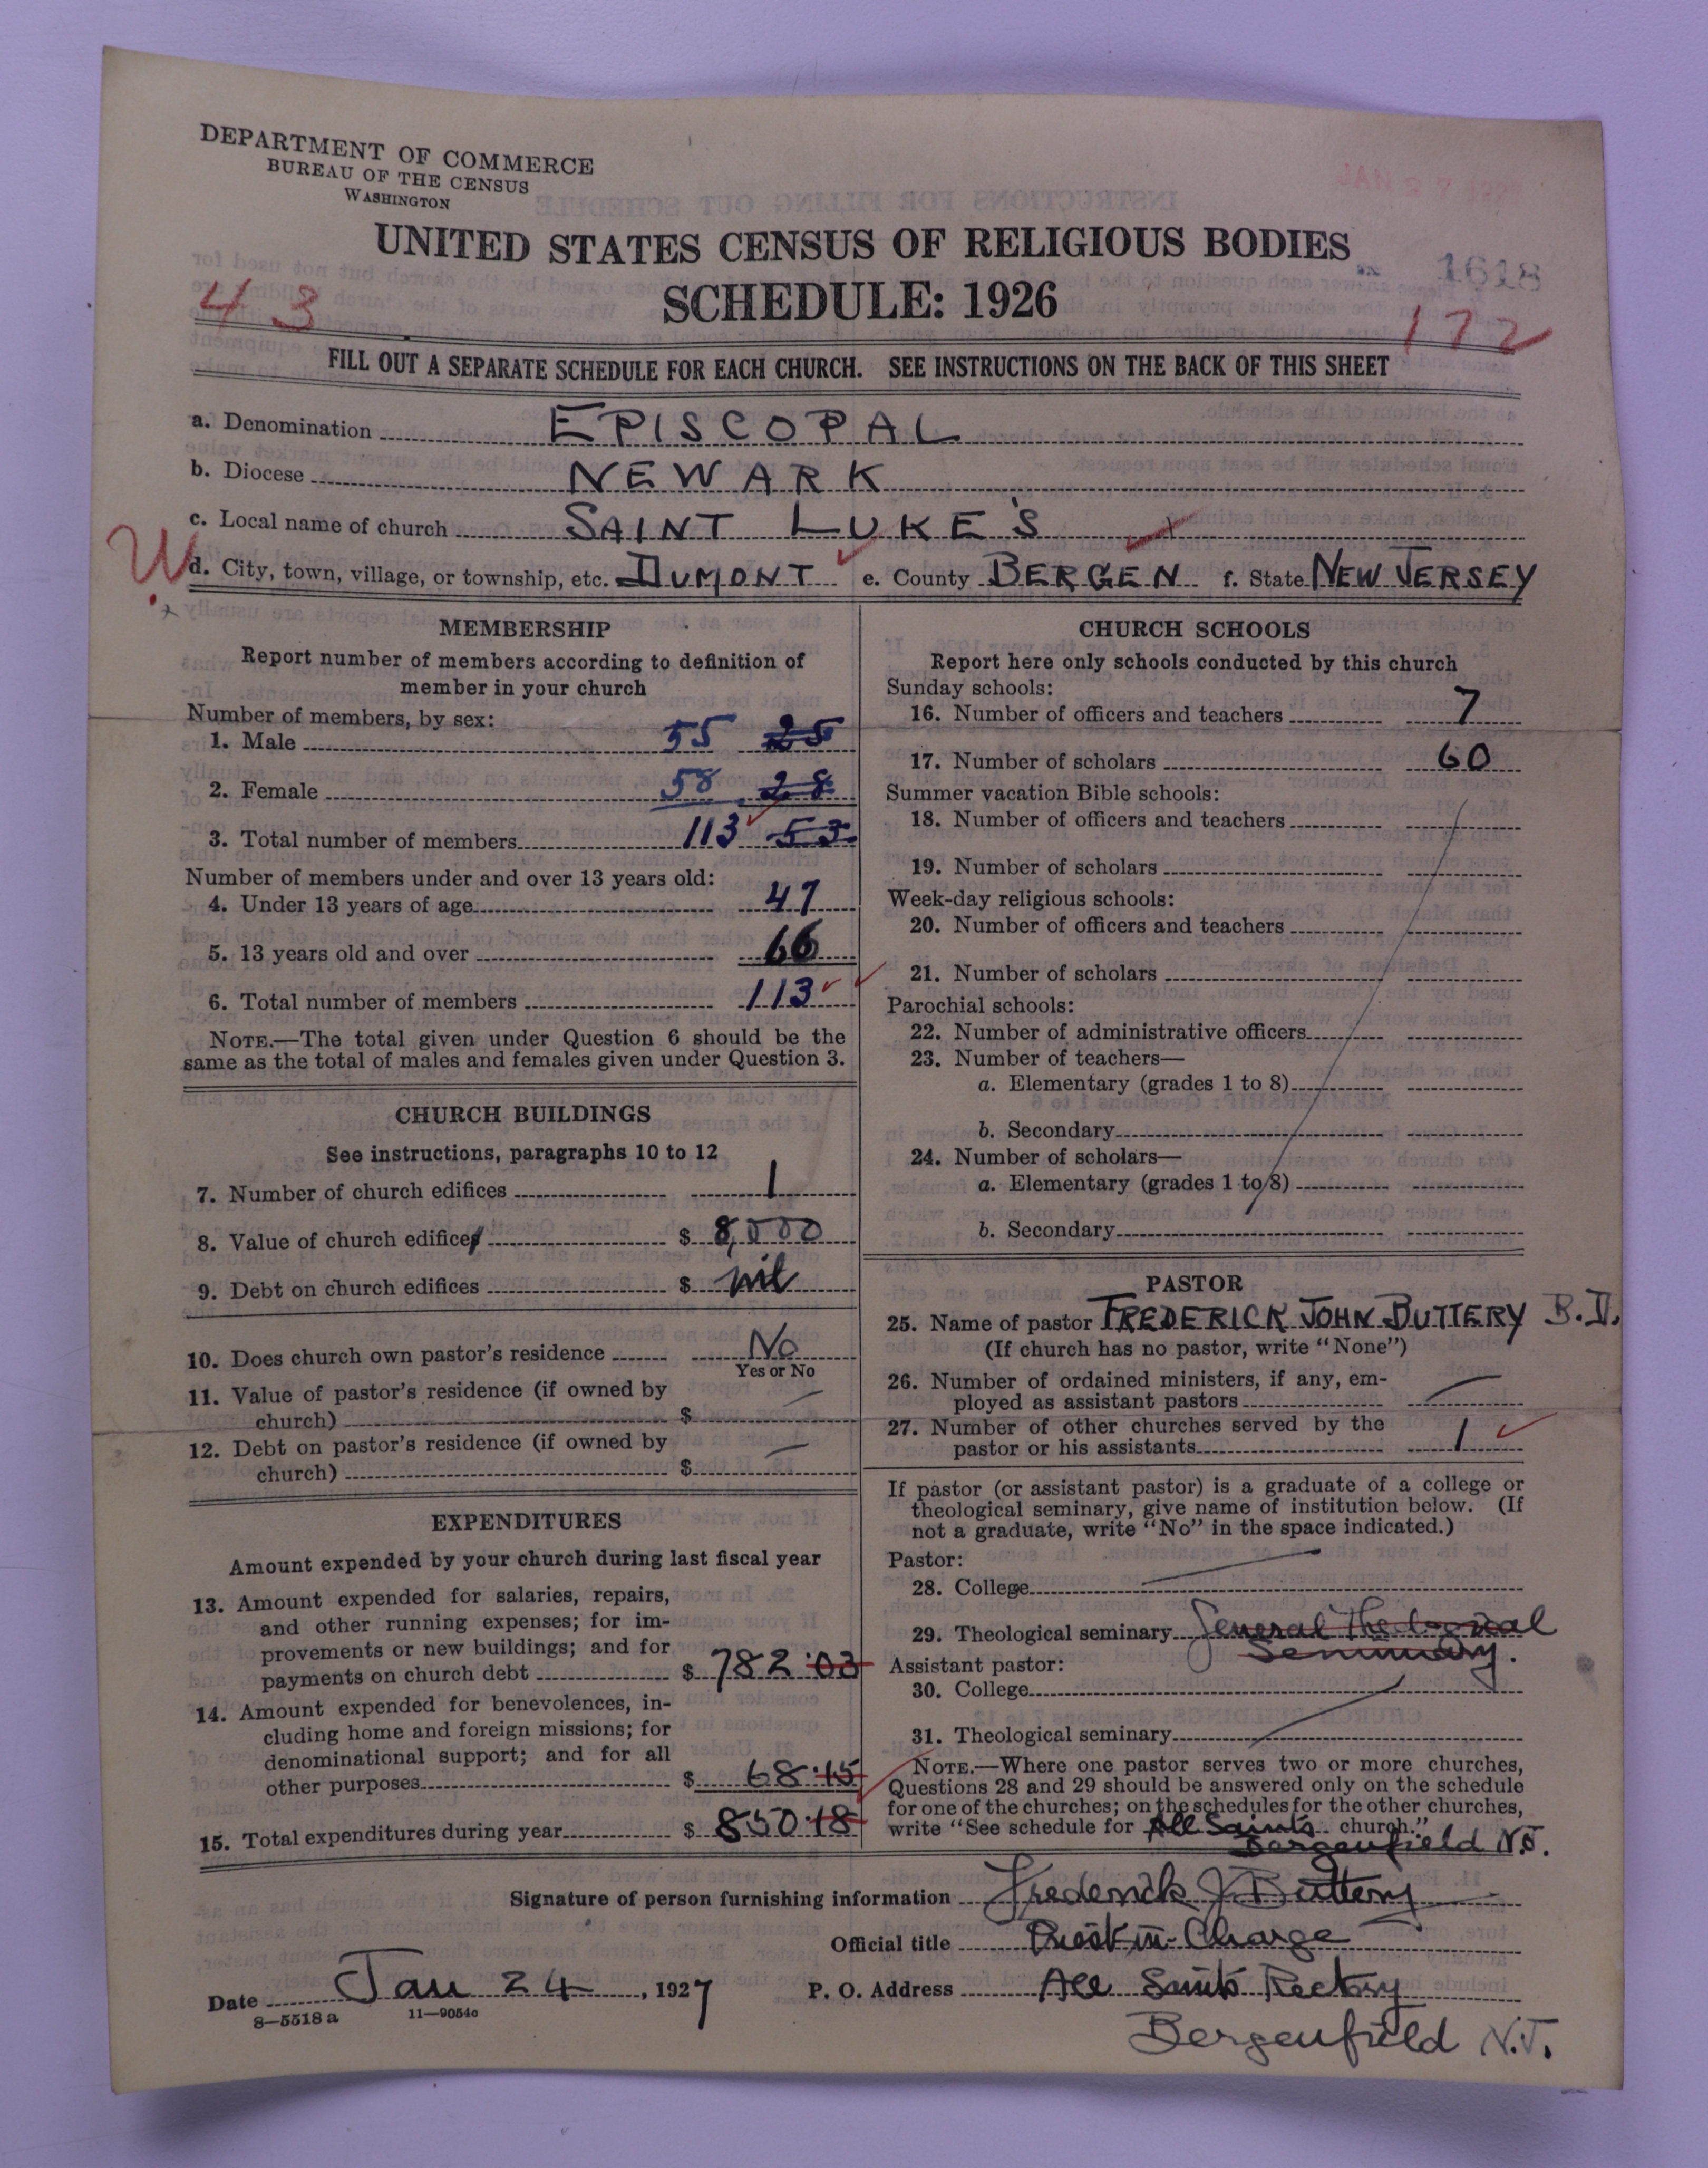 DEPARTMENT OF COMMERCE
BUREAU OF THE CENSUS
WASHINGTON
JAN 27
UNITED STATES CENSUS OF RELIGIOUS BODIES
1618
43
SCHEDULE: 1926
172
FILL OUT A SEPARATE SCHEDULE FOR EACH CHURCH. SEE INSTRUCTIONS ON THE BACK OF THIS SHEET
a. Denomination EPISCOPAL
b. Diocese NEWARK
c. Local name of church SAINT LUKE'S
W
d. City, town, village, or township, etc. DUMONT e. County BERGEN f. State NEW JERSEY
MEMBERSHIP
Report number of members according to definition of
member in your church
Number of members, by sex:
1. Male 55 25
2. Female 58 28
3. Total number of members 113 53
Number of members under and over 13 years old:
4. Under 13 years of age 47
5. 13 years old and over 66
6. Total number of members 113
NOTE.—The total given under Question 6 should be the
same as the total of males and females given under Question 3.
CHURCH BUILDINGS
See instructions, paragraphs 10 to 12
7. Number of church edifices 1
8. Value of church edifices $ 8,000
9. Debt on church edifices $ nil
10. Does church own pastor's residence No
Yes or No
11. Value of pastor's residence (if owned by
church) $
12. Debt on pastor's residence (if owned by
church) $
EXPENDITURES
Amount expended by your church during last fiscal year
13. Amount expended for salaries, repairs,
and other running expenses; for im-
provements or new buildings; and for
payments on church debt $ 782.03
14. Amount expended for benevolences, in-
cluding home and foreign missions; for
denominational support; and for all
other purposes $ 68.15
15. Total expenditures during year $ 850.18
CHURCH SCHOOLS
Report here only schools conducted by this church
Sunday schools:
16. Number of officers and teachers 7
17. Number of scholars 60
Summer vacation Bible schools:
18. Number of officers and teachers
19. Number of scholars
Week-day religious schools:
20. Number of officers and teachers
21. Number of scholars
Parochial schools:
22. Number of administrative officers
23. Number of teachers—
a. Elementary (grades 1 to 8)
b. Secondary
24. Number of scholars—
a. Elementary (grades 1 to 8)
b. Secondary
PASTOR
25. Name of pastor FREDERICK JOHN BUTTERY B.D.
(If church has no pastor, write "None")
26. Number of ordained ministers, if any, em-
ployed as assistant pastors
27. Number of other churches served by the
pastor or his assistants 1
If pastor (or assistant pastor) is a graduate of a college or
theological seminary, give name of institution below. (If
not a graduate, write "No" in the space indicated.)
Pastor:
28. College
29. Theological seminary General Theological
Seminary.
Assistant pastor:
30. College
31. Theological seminary
NOTE.—Where one pastor serves two or more churches,
Questions 28 and 29 should be answered only on the schedule
for one of the churches; on the schedules for the other churches,
write "See schedule for All Saints church."
Bergenfield N.J.
Signature of person furnishing information Frederick J. Buttery
Official title Priest-in-Charge
Date Jan 24, 1927 P. O. Address All Saints Rectory
8—5518 a 11—9054c
Bergenfield N.J.